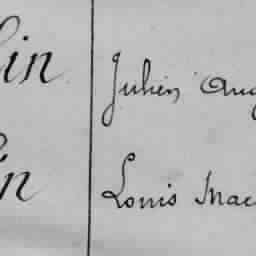 in Julien Aug
in Louis Mac